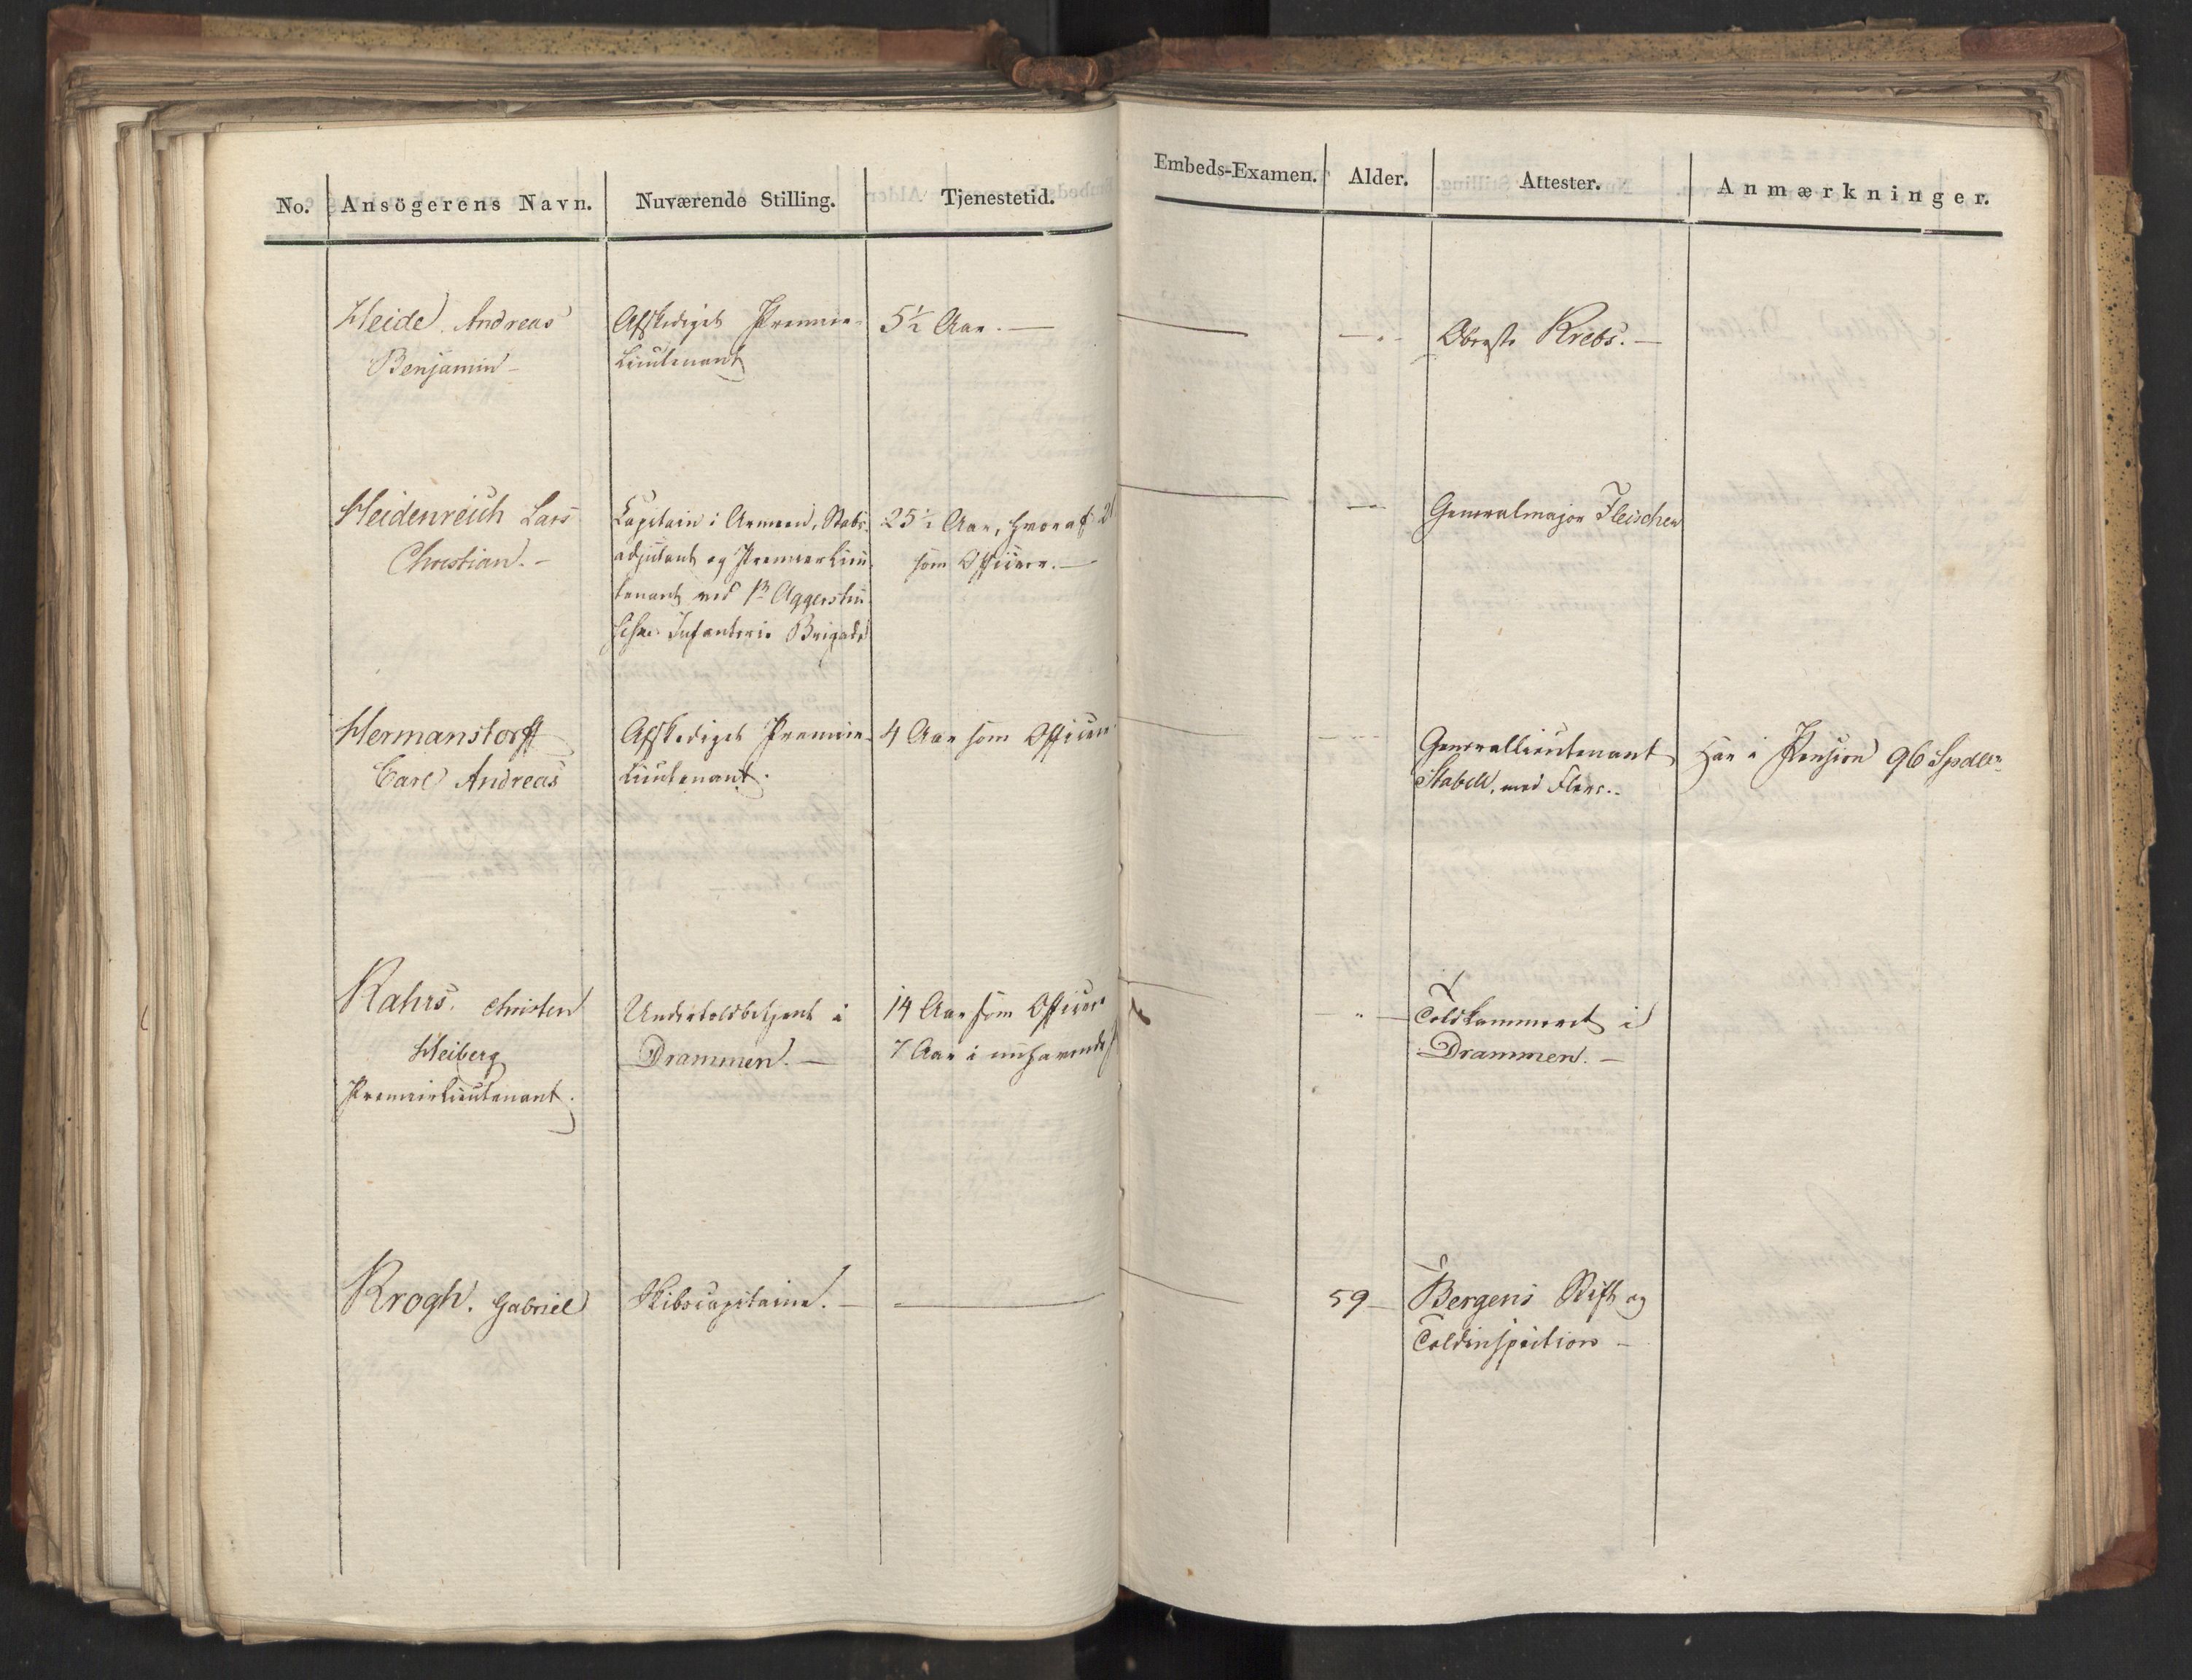 No. Ansögerens Navn. Nuværende Stilling. Tjenestetid. Embeds-Examen. Alder. Attester. Anmærkninger.
Heide, Andreas
Benjamin -
Afskediget Premier-
Lieutenant
5½ Aar. —
Oberst Krebs. —
Heidenreich Lars
Christian. -
Capitain i Armeen, Stabs-
adjutant og Premier Lieu-
tenant ved 1ste Aggershu-
siske Infanterie Brigade
25½ Aar, hvoraf 21
som Officeer. —
Generalmajor Fleischer
Hermanstorff
Carl Andreas
Afskediget Premier-
Lieutenant.
4 Aar som Officeer
Generallieutenant
Stabell, med Flere. -
Har i Pension 96 Spdlr
Kahrs. Christen
Heiberg
Premierlieutenant.
Undertoldbetjent i
Drammen. —
14 Aar som Officeer
7 Aar i nuhavende
Toldkammeret i
Drammen. —
Krogh. Gabriel
Skibscapitaine. —
59 —
Bergens Stift og
Toldinspection —